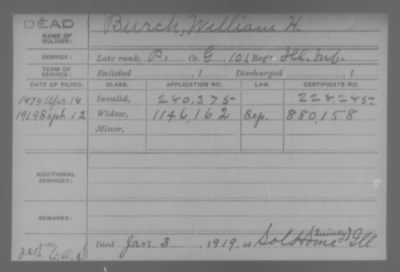 DEAD
NAME OF SOLDIER:
Burch, William H.
SERVICE:
Late rank, Pi Co. G, 101 Reg't Ill. Inf.
TERM OF SERVICE:
Enlisted , 1 Discharged , 1
DATE OF FILING. CLASS. APPLICATION NO. LAW. CERTIFICATE NO.
1879 Apr. 14 Invalid, 280.375 224.245
1919 Sept. 12 Widow, 1146,162 Sep. 880,158
Minor,
ADDITIONAL SERVICES:
REMARKS:
(Quincy)
Died Jan 3, 1919, at Sol Home Ill